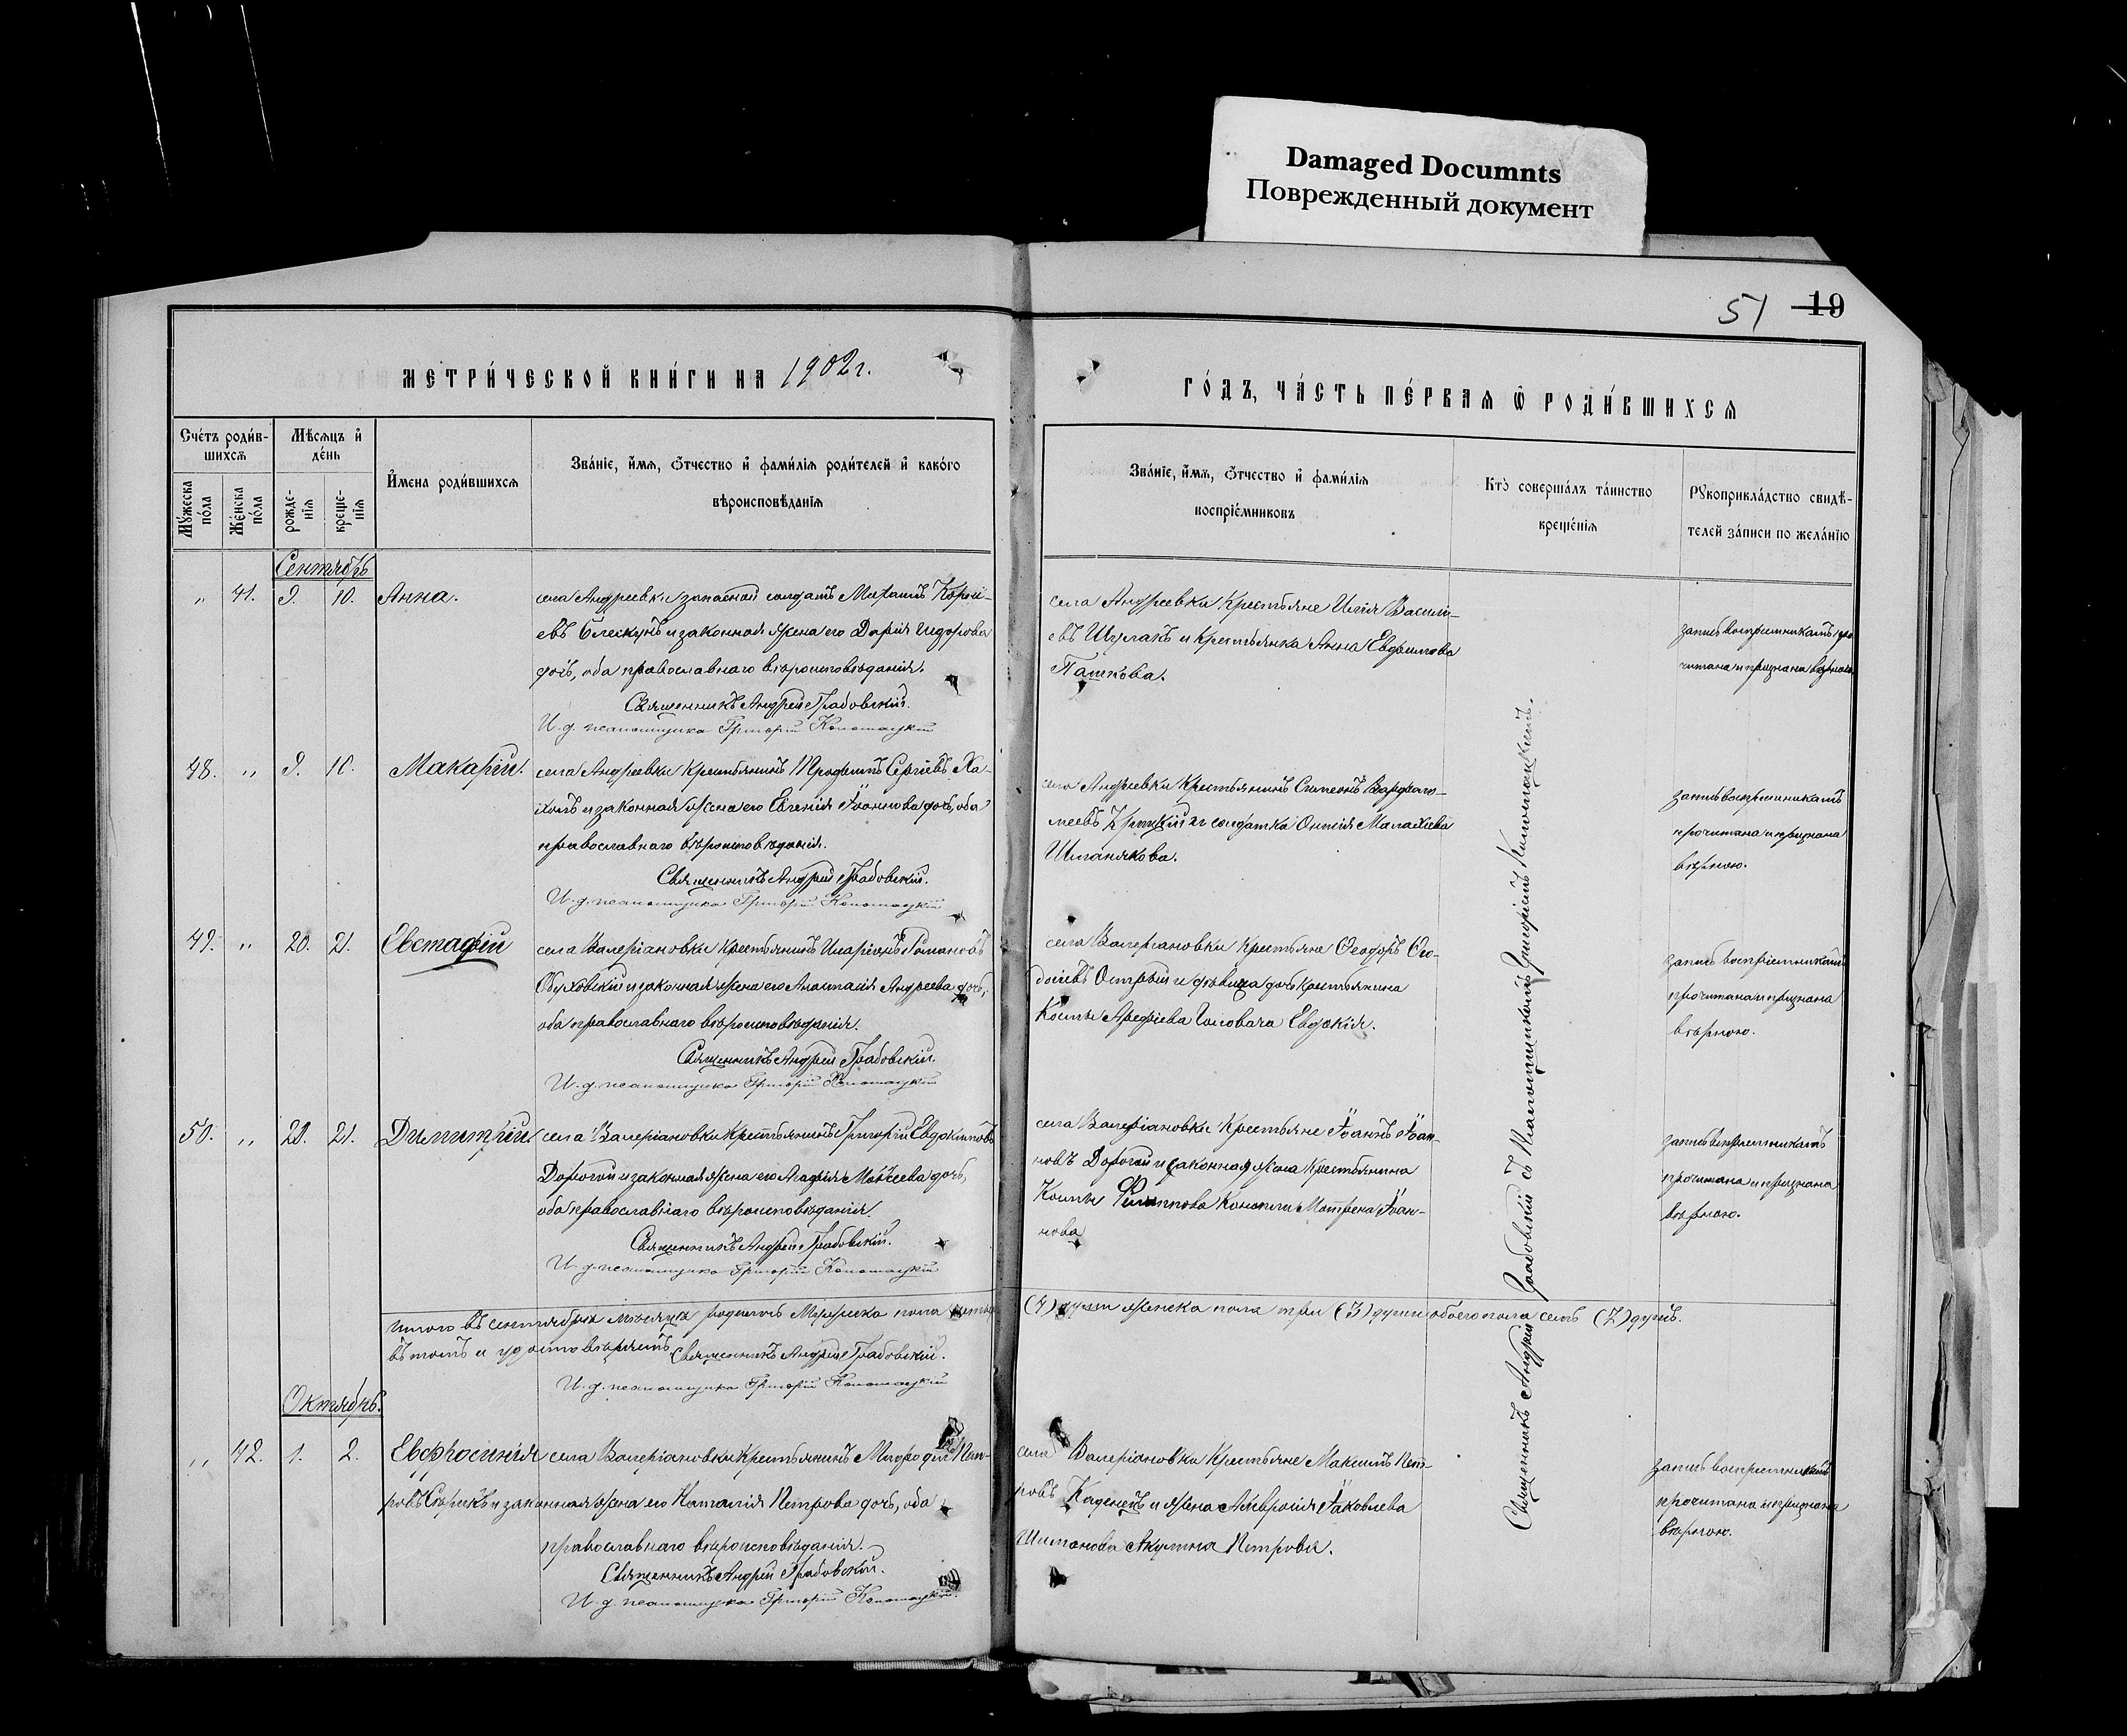 Damaged Documnts
Поврежденный документ
51 19
метри́ческой кни́ги на 1902 г.
го́дъ, ча́сть пе́рваѧ ѽ роди́вшихсѧ
Сче́тъ роди́в-
шихсѧ
Мѣсѧцъ и҆
де́нь
Му́жеска
по́ла
Же́нска
по́ла
рожде-
нїѧ
креще-
нїѧ
И҆мена роди́вшихсѧ
Зва́нїе, и҆́мѧ, ѻ҆́тчество и҆ фами́лїѧ роди́телей и҆ како́гѡ
вѣроисповѣ́данїѧ
Зва́нїе, и҆́мѧ, ѻ҆́тчество и҆ фами́лїѧ
воспрїе́мниковъ
Кто̀ соверша́лъ та́инство
креще́нїѧ
Рꙋкоприкла́дство свидѣ́-
телей за́писи по жела́нїю
Сентябрь
„ 41. 9. 10. Анна.
села Андреевки запасной солдатъ
евъ и законная жена его Дарія Исидорова
дочь, оба православнаго вѣроисповѣданія.
Священникъ Андрей Грабовскій.
И. д. псаломщика Григорій Копотацкій
села Андреевки Крестьяне Илія Василі-
евъ Шулакъ и Крестьянка Анна
Пашкова.
запись воспріемникамъ про-
читана и признана вѣрною
48. „ 9. 10. Макарій.
села Андреевки Крестьянинъ Сергіевъ Ха-
и законная жена его Евгенія Іоаннова дочь, оба
православнаго вѣроисповѣданія.
Священникъ Андрей Грабовскій.
И. д. псаломщика Григорій Копотацкій
села Андреевки Крестьянинъ Симеонъ Варфоло-
меевъ и солдатка Малахіева
запись воспріемникамъ
прочитана и признана
вѣрною.
49. „ 20. 21. Евстафій
села Валеріановки Крестьянинъ Иларіонъ Романовъ
Обуховскій и законная жена его Анастасія Андреева дочь,
оба православнаго вѣроисповѣданія.
Священникъ Андрей Грабовскій.
И. д. псаломщика Григорій Копотацкій
села Валеріановки Крестьяне Ѳеодоръ Ѳео-
досіевъ Острый и дѣвица дочь Крестьянина
Космы Арефіева Головача Евдокія.
запись воспріемникамъ
прочитана и признана
вѣрною.
50. „ 20. 21. Димитрій
села Валеріановки Крестьянинъ Григорій Евдокимовъ
Дорогой и законная жена его Агафія Моѵсеева дочь,
оба православнаго вѣроисповѣданія.
Священникъ Андрей Грабовскій.
И. д. псаломщика Григорій Копотацкій
села Валеріановки Крестьяне Іоаннъ Іоан-
новъ Дорогой и законная жена Крестьянина
Космы Филиппова Конопли Матрена Іоан-
нова
запись воспріемникамъ
прочитана и признана
вѣрною.
Священникъ Андрей Грабовскій съ Псаломщикомъ Григоріемъ Копотацкимъ.
Итого въ сентябрѣ мѣсяцѣ родилось Мужеска пола четыре (4) души женска пола три (3) души обоего пола семь (7) душъ.
въ томъ и удостовѣряемъ Священникъ Андрей Грабовскій.
И. д. псаломщика Григорій Копотацкій
Октябрь.
„ 42. 1. 2. Евфросинія
села Валеріановки Крестьянинъ Пет-
ровъ и законная жена его Наталія Петрова дочь, оба
православнаго вѣроисповѣданія.
Священникъ Андрей Грабовскій.
И. д. псаломщика Григорій Копотацкій.
села Валеріановки Крестьяне Максимъ Пет-
ровъ и жена Іаковлева
Акулина Петрова.
запись воспріемникамъ
прочитана и признана
вѣрною.